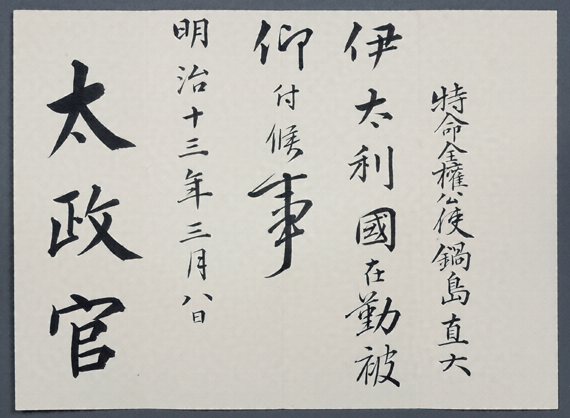 特命全權公使鍋島直大
伊太利國在勤被
仰付候事
明治十三年三月八日
太政官